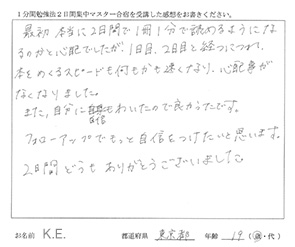 1分間勉強法2日間集中マスター合宿を受講した感想をお書きください。
最初 本当に2日間で1冊1分で読めるようになる
のかと心配でしたが、1日目、2日目と経つにつれて、
本をめくるスピードも何もかも速くなり、心配事が
なくなりました。
また、自分に自信もわいたので良かったです。
フォローアップでもっと自信をつけたいと思います。
2日間どうもありがとうございました。
お名前 K.E. 都道府県 東京都 年齢 19(歳・代)